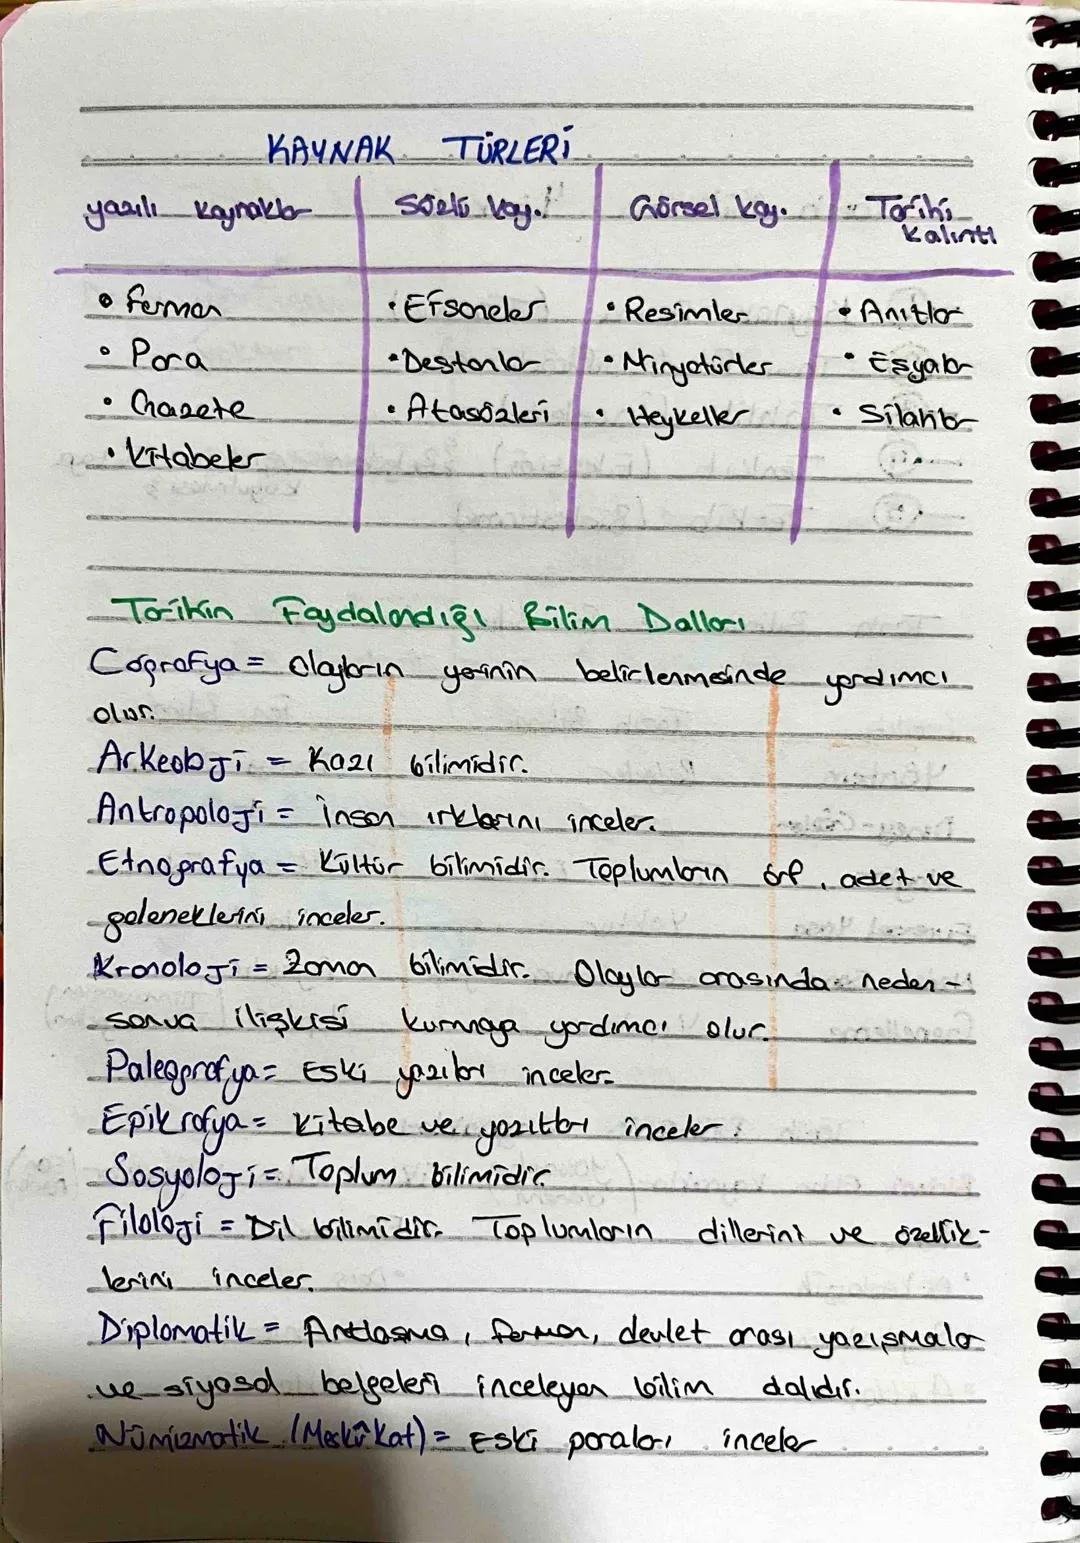 KAYNAK TÜRLERİ
yazılı kaynaklar
Sözlü kay.
Görsel kay.
Tarihi Kalıntı
• Ferman
• Para
• Gazete
• Kitabeler
• Efsaneler
• Destanlar
• Atasözleri
• Resimler
• Minyatürler
• Heykeller
• Anıtlar
• Eşyalar
• Silahlar
Tarihin Faydalandığı Bilim Dalları
Coğrafya = Olayların yerinin belirlenmesinde yardımcı
olur.
Arkeoloji = Kazı bilimidir.
Antropoloji = İnsan ırklarını inceler.
Etnografya = Kültür bilimidir. Toplumların örf, adet ve
geleneklerini inceler.
Kronoloji = Zaman bilimidir. Olaylar arasında neden-
sonuç ilişkisi kurmaya yardımcı olur.
Paleografya = Eski yazıları inceler.
Epikrafya = Kitabe ve yazıtları inceler.
Sosyoloji = Toplum bilimidir.
Filoloji = Dil bilimidir. Toplumların dillerini ve özellik-
lerini inceler.
Diplomatik = Antlaşma, ferman, devlet arası yazışmalar
ve siyasal belgeleri inceleyen bilim dalıdır.
Nümizmatik (Meskûkat) = Eski paraları inceler